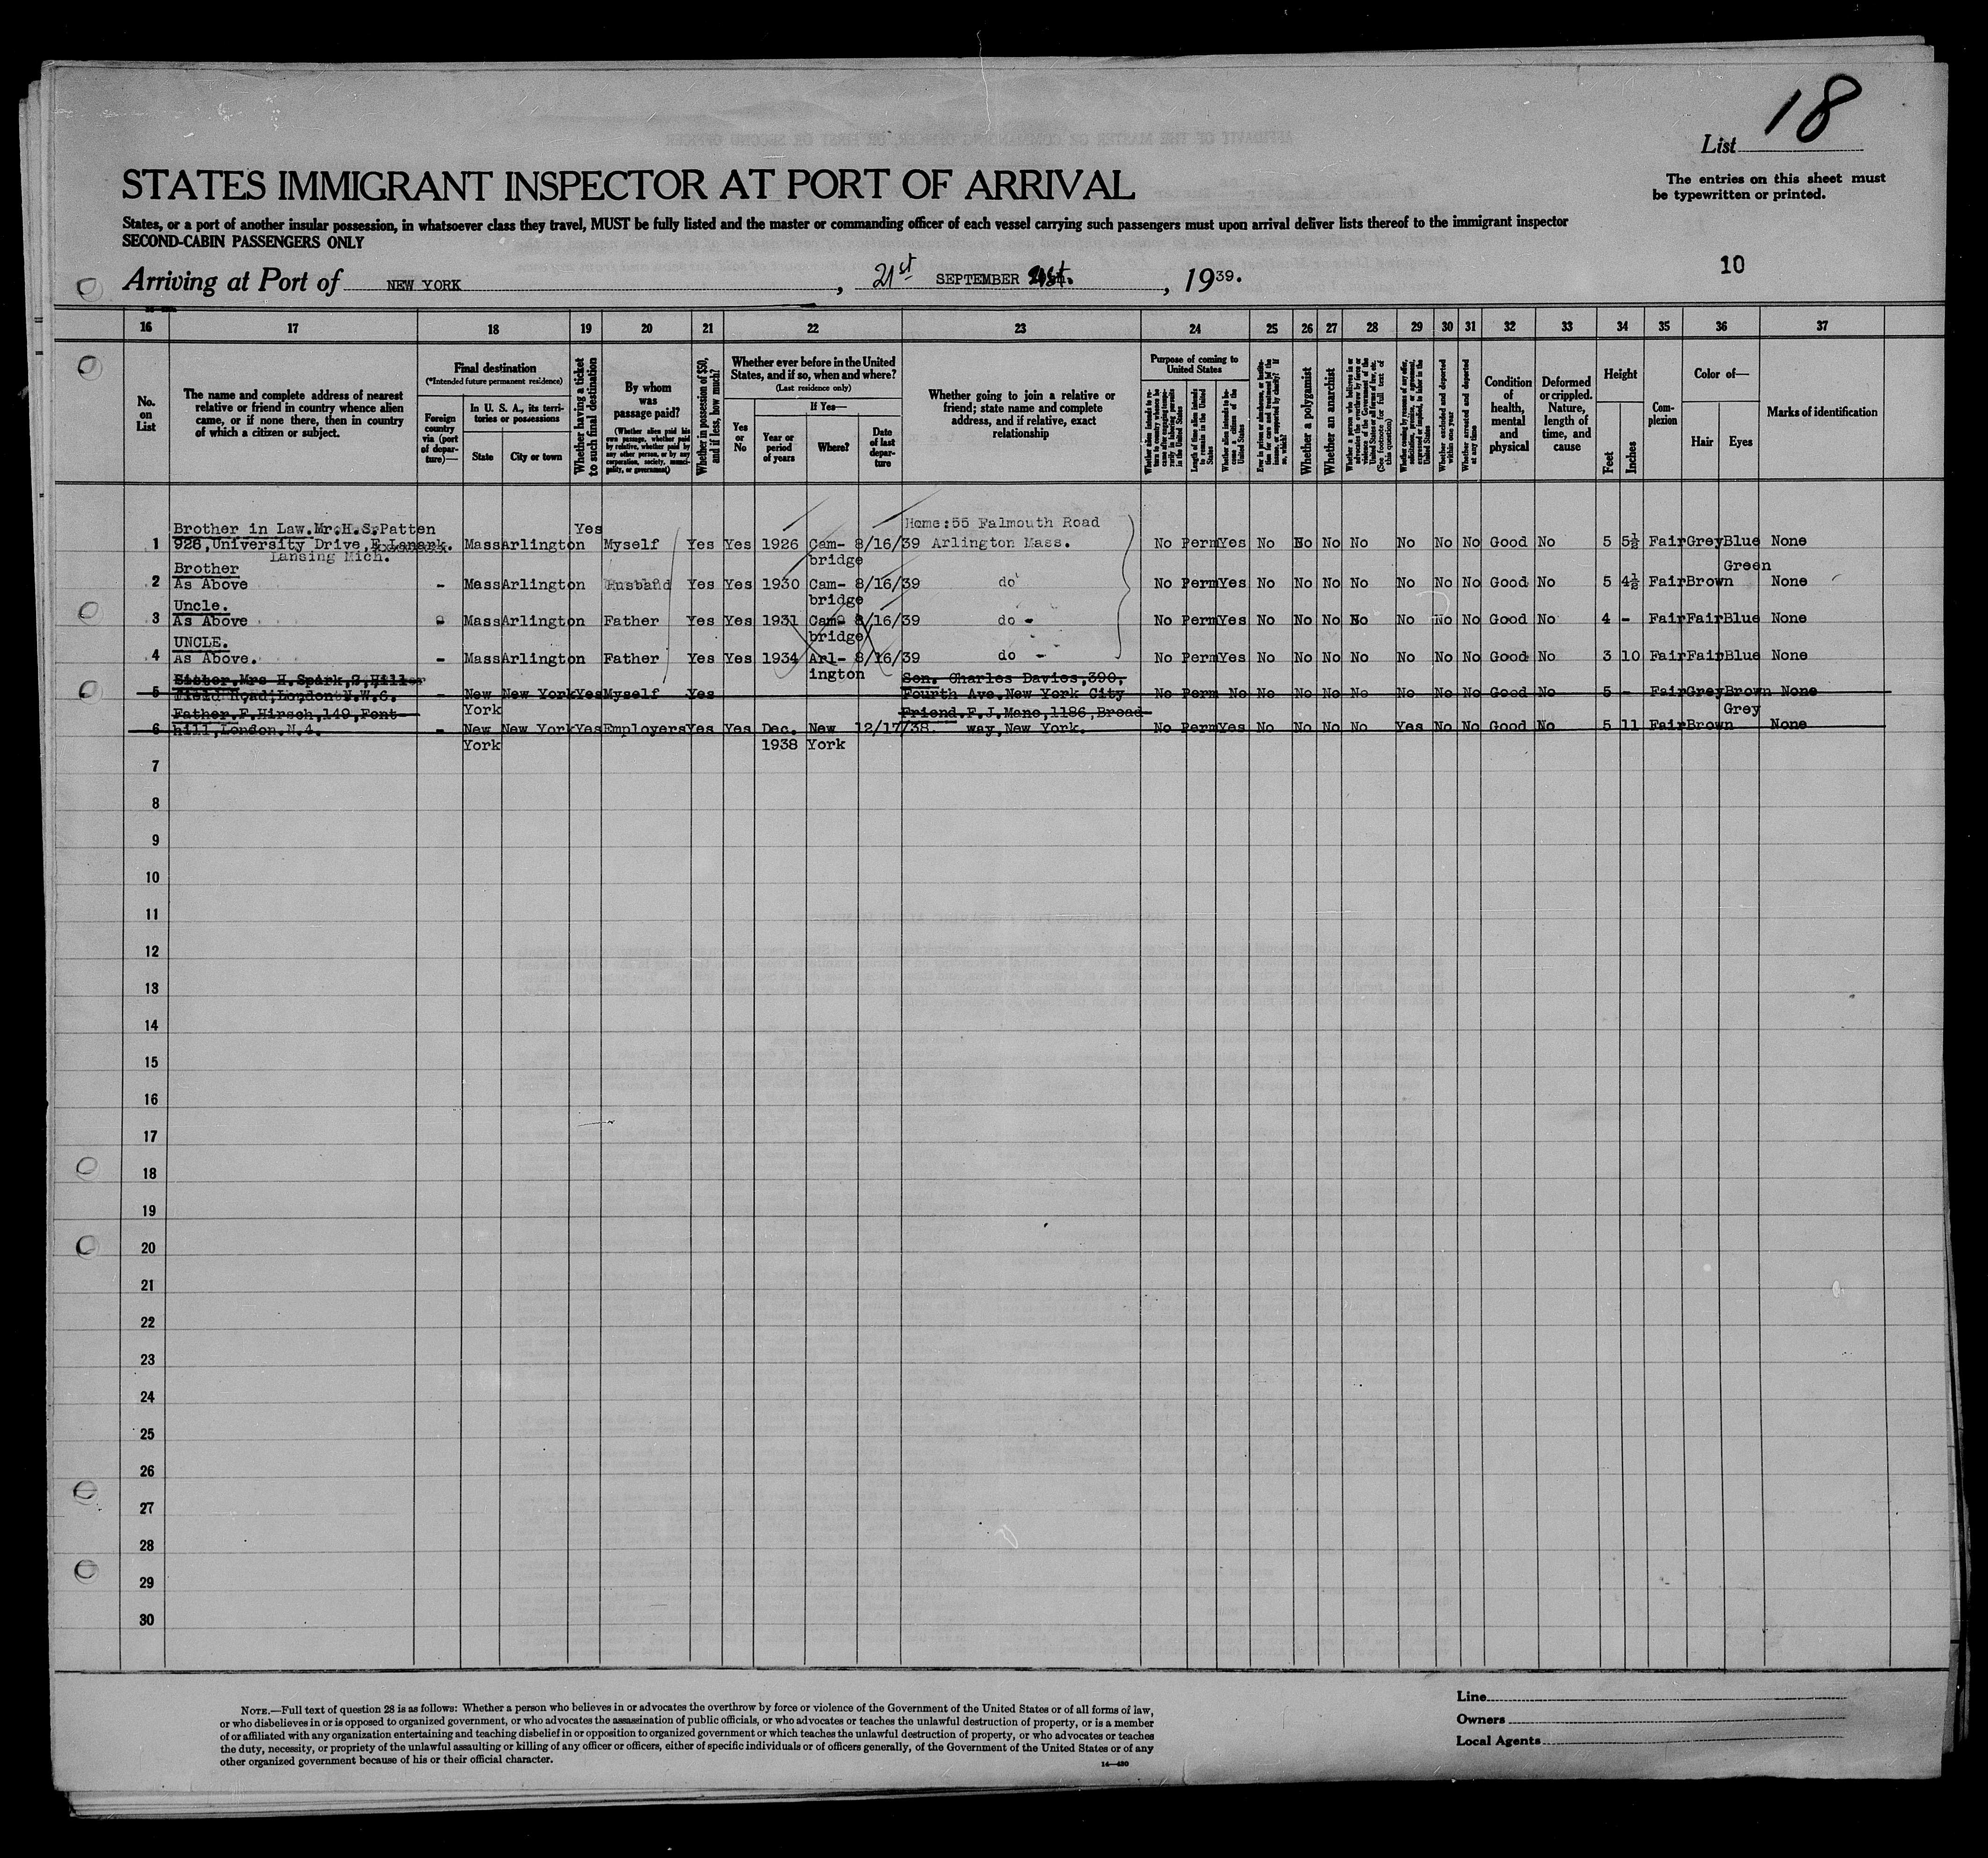 List 18
STATES IMMIGRANT INSPECTOR AT PORT OF ARRIVAL
The entries on this sheet must
be typewritten or printed.
States, or a port of another insular possession, in whatsoever class they travel, MUST be fully listed and the master or commanding officer of each vessel carrying such passengers must upon arrival deliver lists thereof to the immigrant inspector
SECOND-CABIN PASSENGERS ONLY
10
Arriving at Port of NEW YORK, 21st SEPTEMBER 21st., 1939.
16 17 18 19 20 21 22 23 24 25 26 27 28 29 30 31 32 33 34 35 36 37
No.
on
List
The name and complete address of nearest
relative or friend in country whence alien
came, or if none there, then in country
of which a citizen or subject.
Final destination
(*Intended future permanent residence)
Foreign
country
via (port
of depar-
ture)—
In U. S. A., its terri-
tories or possessions
State
City or town
Whether having a ticket
to such final destination
By whom
was
passage paid?
(Whether alien paid his
own passage, whether paid
by relative, whether paid by
any other person, or by any
corporation, society, munici-
pality, or government)
Whether in possession of $50,
and if less, how much?
Whether ever before in the United
States, and if so, when and where?
(Last residence only)
Yes
or
No
If Yes—
Year or
period
of years
Where?
Date
of last
depar-
ture
Whether going to join a relative or
friend; state name and complete
address, and if relative, exact
relationship
Purpose of coming to
United States
Whether alien intends to re-
turn to country whence he
came after engaging tempo-
rarily in laboring pursuits
in the United States
Length of time alien intends
to remain in the United
States
Whether alien intends to be-
come a citizen of the
United States
Ever in prison or almshouse, or institu-
tion for care and treatment of the
insane, or supported by charity? If
so, which?
Whether a polygamist
Whether an anarchist
Whether a person who believes in or
advocates the overthrow by force or
violence of the Government of the
United States or all forms of law, etc.
(See footnote for full text of
this question)
Whether coming by reason of any offer,
solicitation, promise, or agreement,
expressed or implied, to labor in the
United States
Whether excluded and deported
within one year
Whether arrested and deported
at any time
Condition
of
health,
mental
and
physical
Deformed
or crippled.
Nature,
length of
time, and
cause
Height
Feet
Inches
Com-
plexion
Color of—
Hair
Eyes
Marks of identification
Brother in Law.Mr.H.S.Patten Yes Home:55 Falmouth Road
1 926,University Drive,E. Mass Arlington Myself Yes Yes 1926 Cam- 8/16/39 Arlington Mass. No Perm Yes No No No No No No No Good No 5 5½ Fair Grey Blue None
Lansing Mich. bridge
Brother Green
2 As Above - Mass Arlington Husband Yes Yes 1930 Cam- 8/16/39 do No Perm Yes No No No No No No No Good No 5 4½ Fair Brown None
Uncle. bridge
3 As Above Mass Arlington Father Yes Yes 1931 Cam- 8/16/39 do - No Perm Yes No No No No No No No Good No 4 - Fair Fair Blue None
UNCLE. bridge
4 As Above. - Mass Arlington Father Yes Yes 1934 Arl- 8/16/39 do - No Perm Yes No No No No No No No Good No 3 10 Fair Fair Blue None
Sister.Mrs H.Spark,2,Hiller ington Son. Charles Davies,390,
5 field Road,London N.W.6. - New New York Yes Myself Yes Fourth Ave.New York City No Perm No No No No No No No No Good No 5 - Fair Grey Brown None
Father.F.Hirsch,149,Font- York Friend.F.J.Mano,1186,Broad- Grey
6 hill,London.N.4. - New New York Yes Employers Yes Yes Dec. New 12/17/38. way,New York. No Perm Yes No No No No Yes No No Good No 5 11 Fair Brown None
York 1938 York
7
8
9
10
11
12
13
14
15
16
17
18
19
20
21
22
23
24
25
26
27
28
29
30
NOTE.—Full text of question 28 is as follows: Whether a person who believes in or advocates the overthrow by force or violence of the Government of the United States or of all forms of law,
or who disbelieves in or is opposed to organized government, or who advocates the assassination of public officials, or who advocates or teaches the unlawful destruction of property, or is a member
of or affiliated with any organization entertaining and teaching disbelief in or opposition to organized government or which teaches the unlawful destruction of property, or who advocates or teaches
the duty, necessity, or propriety of the unlawful assaulting or killing of any officer or officers, either of specific individuals or of officers generally, of the Government of the United States or of any
other organized government because of his or their official character.
14—480
Line
Owners
Local Agents